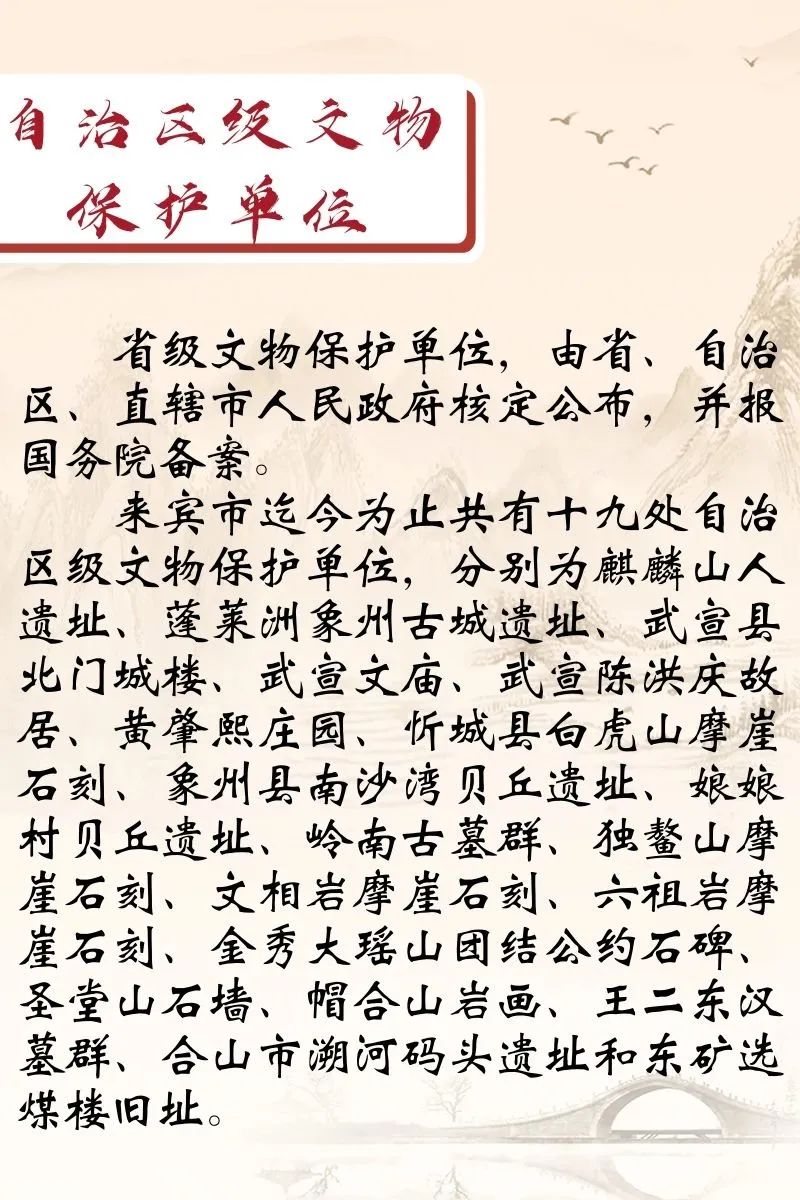 自治区级文物
保护单位
省级文物保护单位，由省、自治
区、直辖市人民政府核定公布，并报
国务院备案。
来宾市迄今为止共有十九处自治
区级文物保护单位，分别为麒麟山人
遗址、蓬莱洲象州古城遗址、武宣县
北门城楼、武宣文庙、武宣陈洪庆故
居、黄肇熙庄园、忻城县白虎山摩崖
石刻、象州县南沙湾贝丘遗址、娘娘
村贝丘遗址、岭南古墓群、独鳌山摩
崖石刻、文相岩摩崖石刻、六祖岩摩
崖石刻、金秀大瑶山团结公约石碑、
圣堂山石墙、帽合山岩画、王二东汉
墓群、合山市溯河码头遗址和东矿选
煤楼旧址。